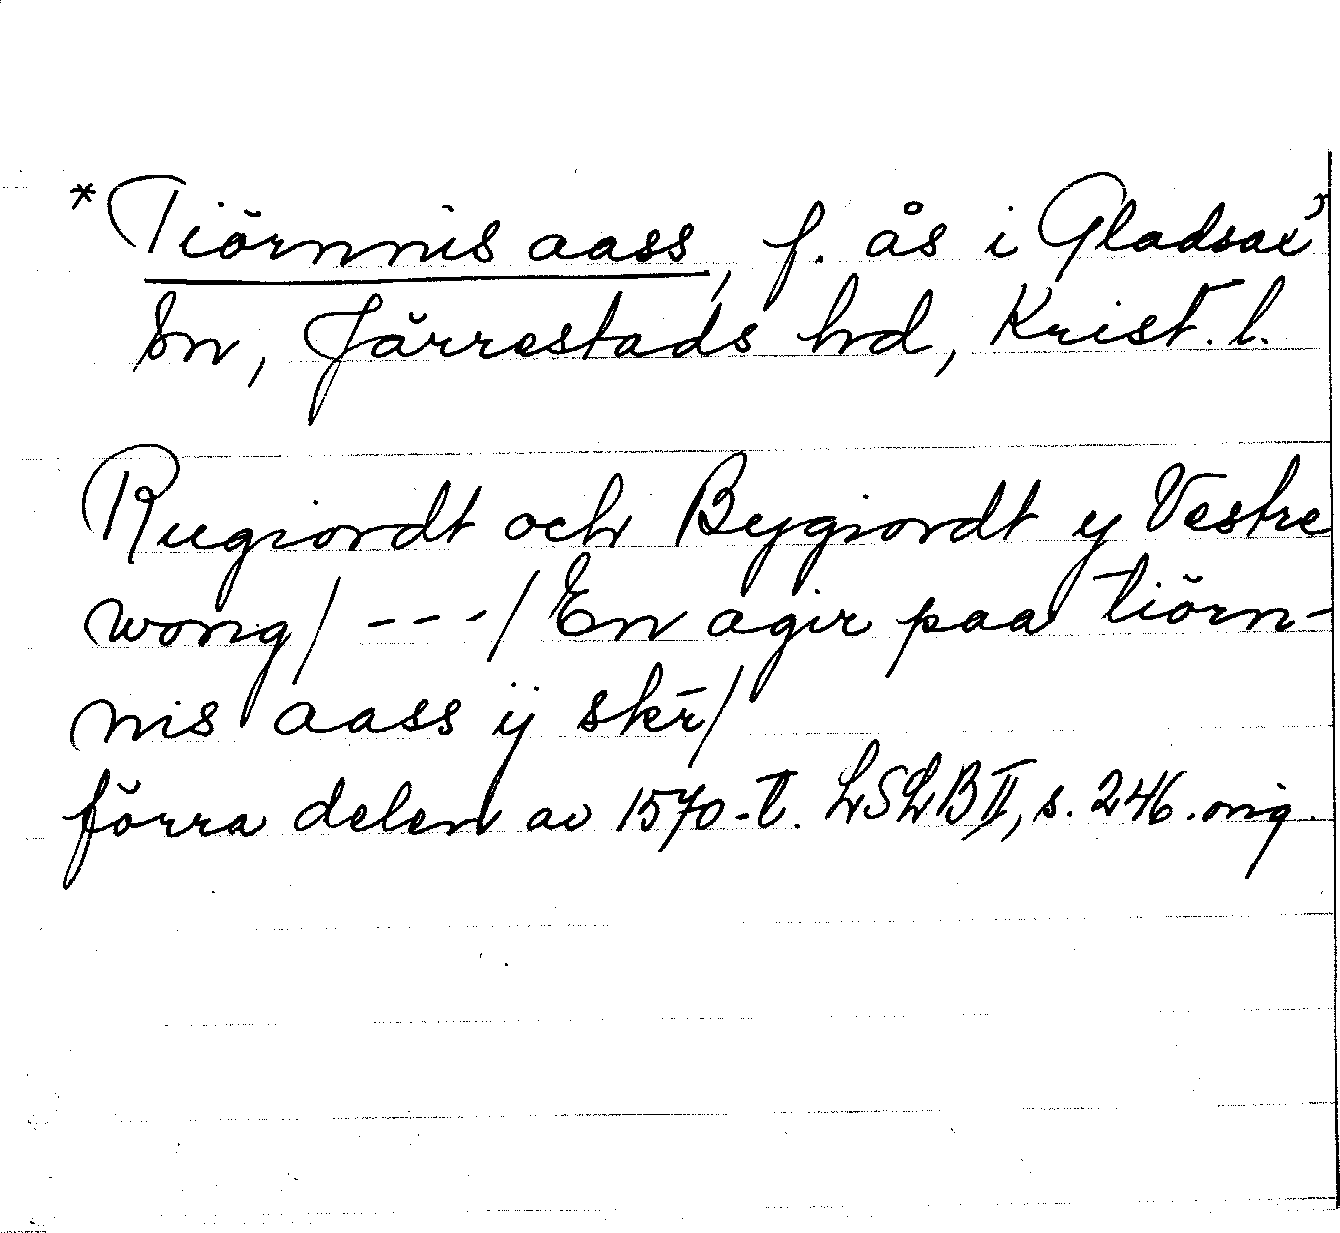 *Tiörnnis aass, f. ås i Gladsax'
sn, Järrestads hd, Krist. l.
Rugiordt och Bygiordt y Vestre
wong/ --- / En agir paa tiörn-
nis aass ij skr̄/
förra delen av 1570-t. LSLB II, s. 246. orig.